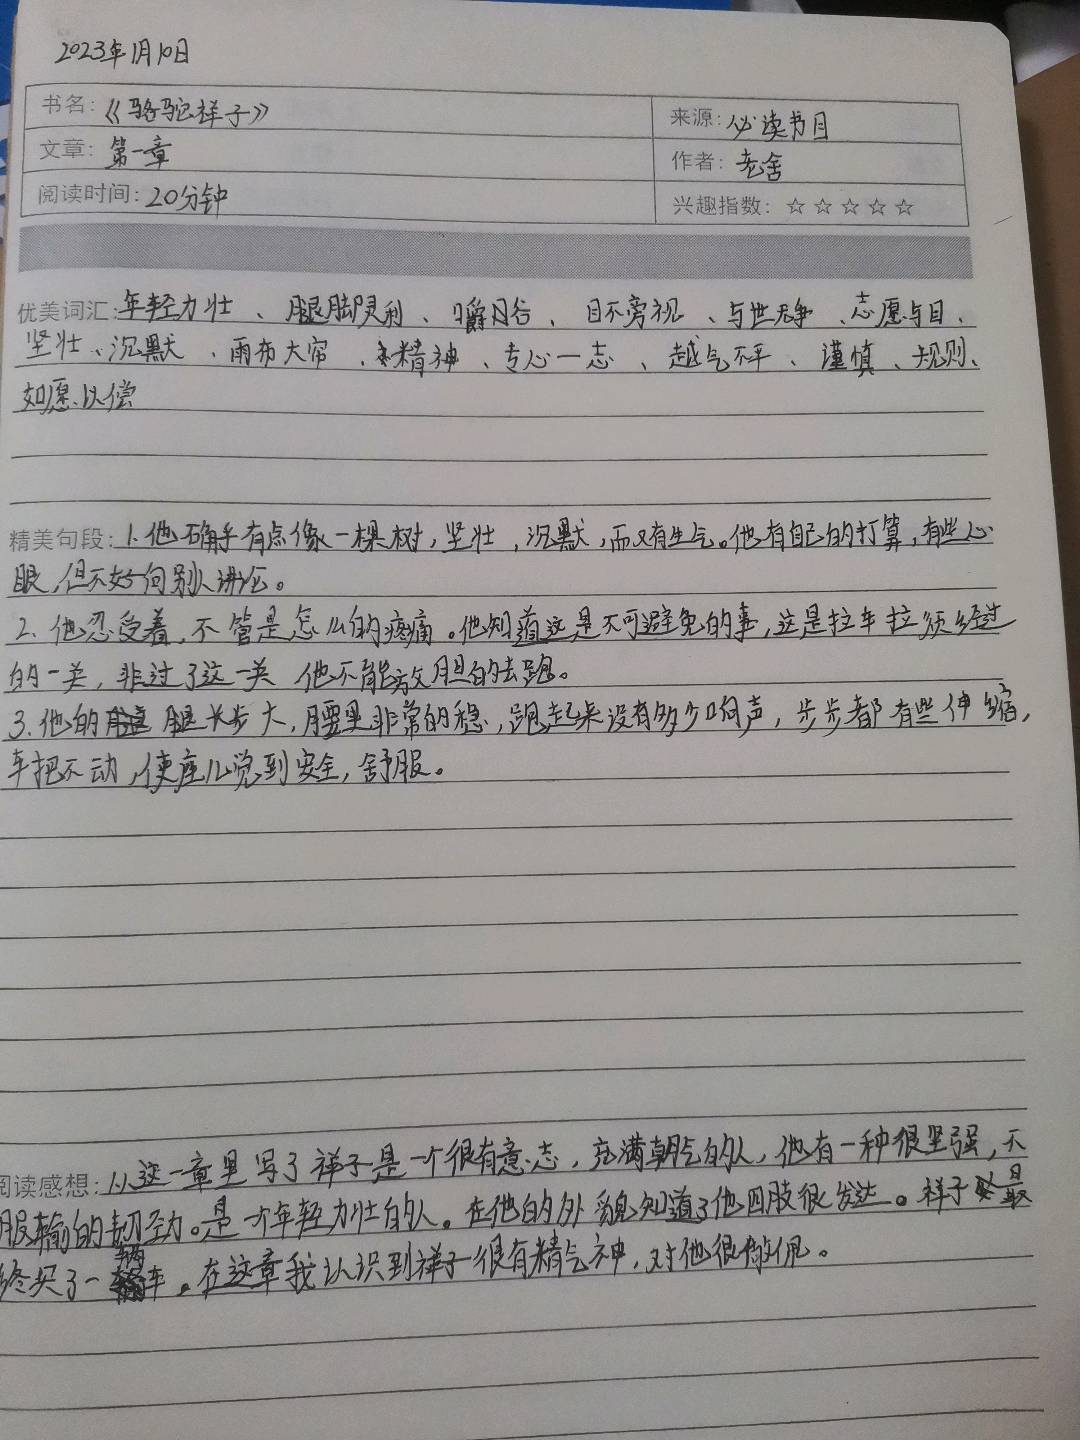 2023年1月10日
书名：《骆驼祥子》 来源：必读书目
文章：第一章 作者：老舍
阅读时间：20分钟 兴趣指数：☆☆☆☆☆
优美词汇：年轻力壮、腿脚灵利、目不旁视、与世无争、志愿与目、
坚壮、沉默、雨布大帘、精神、专心一志、越气不平、谨慎、规则、
如愿以偿
精美句段：1.他确乎有点像一棵树，坚壮，沉默，而又有生气。他有自己的打算，有些心
眼，但不好向别人讲论。
2.他忍受着，不管是怎么的疼痛。他知道这是不可避免的事，这是拉车拉须经过
的一关，非过了这一关 他不能放胆的去跑。
3.他的腿长步大，腰里非常的稳，跑起来没有多少响声，步步都有些伸缩，
车把不动，使座儿觉到安全，舒服。
阅读感想：1.这一章里写了祥子是一个很有意志，充满朝气的人，他有一种很坚强，不
服输的韧劲。是一个年轻力壮的人。在他的外貌知道了他四肢很发达。祥子最
终买了一辆车。在这章我认识到祥子很有精气神，对他很敬佩。